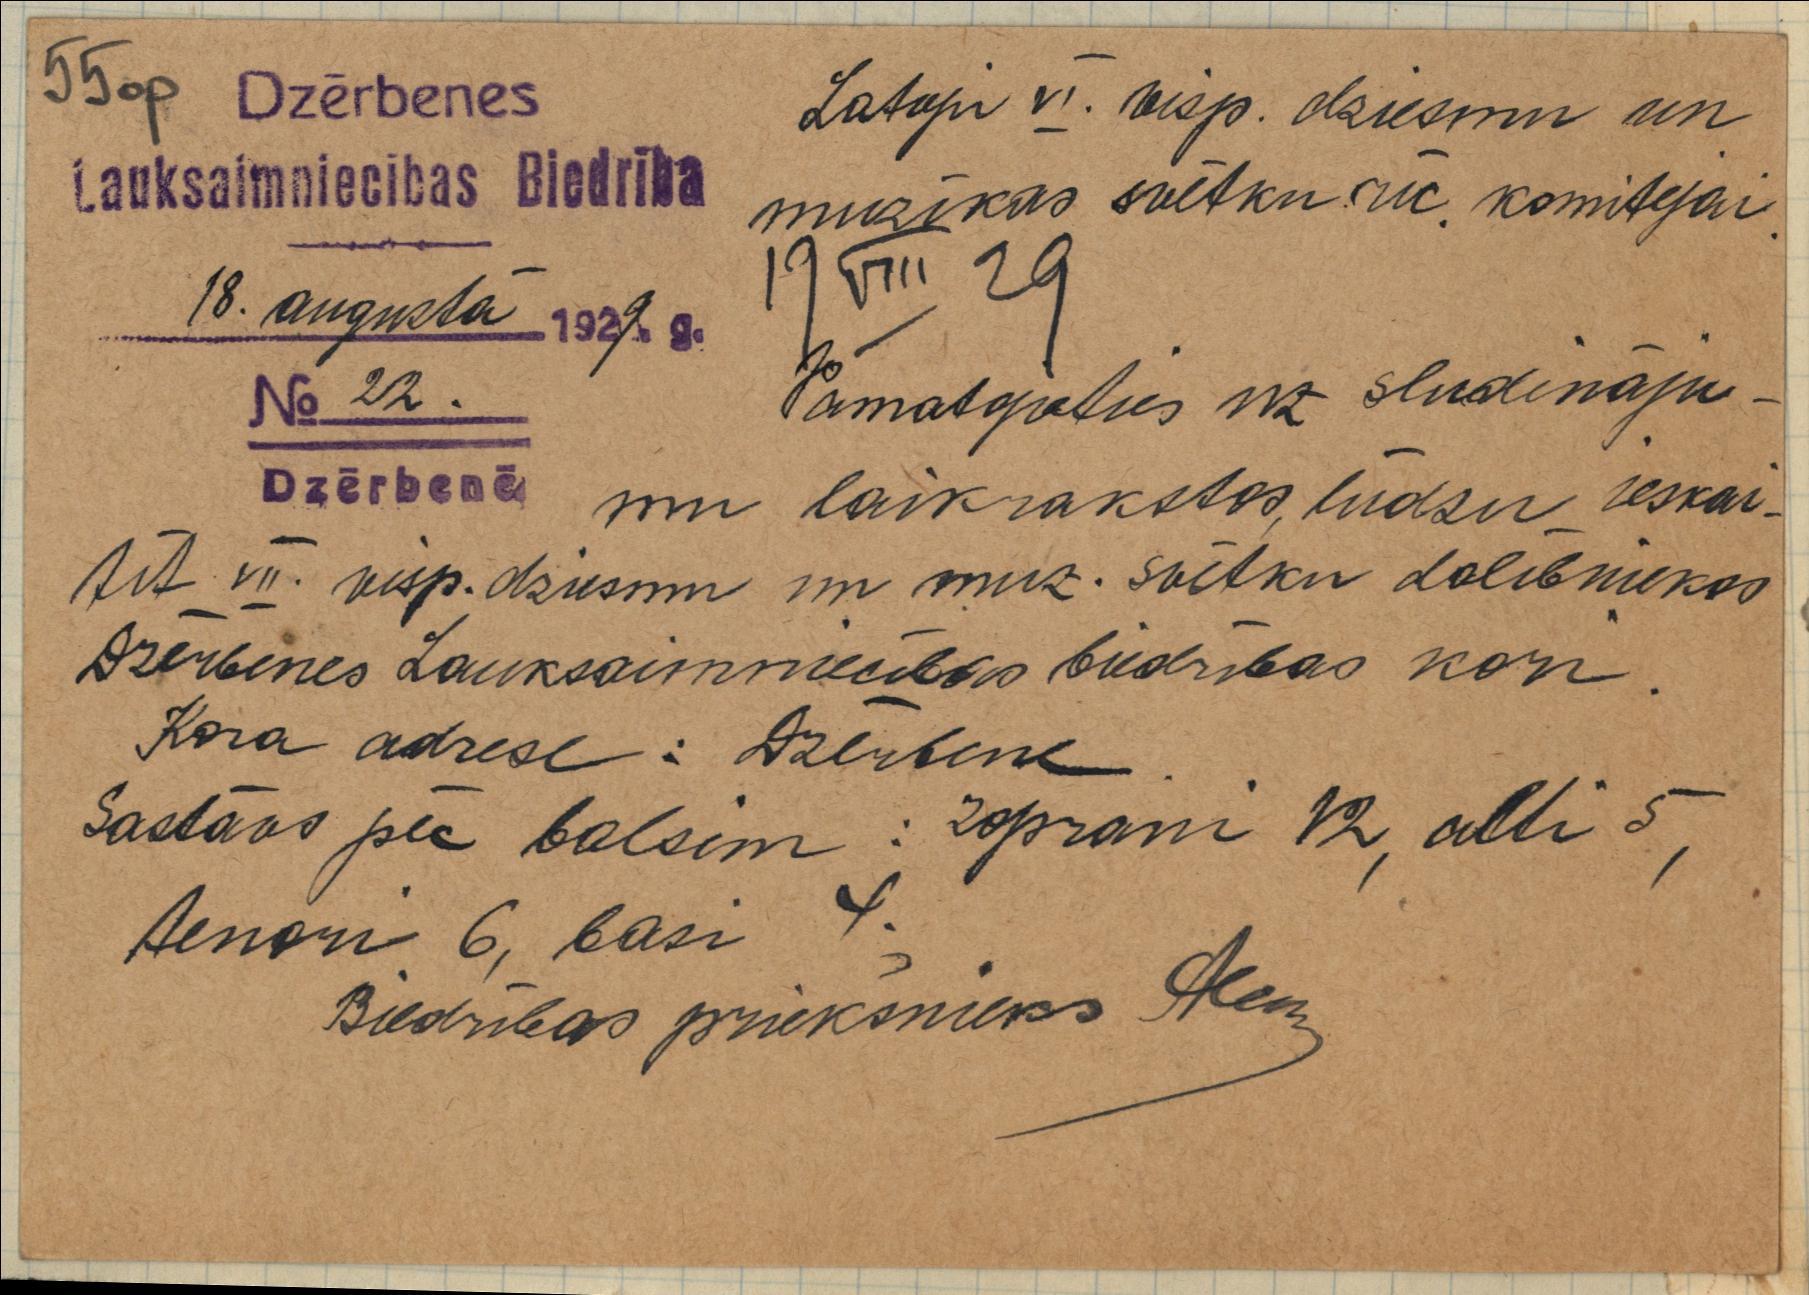 55op
Dzērbenes
Lauksaimniecības Biedrība
18. augustā 1929. g.
№ 22.
Dzērbenē
Latvju VI. visp. dziesmu un
muzikas svētku rīc. komitejai.
19 VIII 29
Pamatojoties uz sludināju-
mu laikrakstos, lūdzu ieskai-
tīt VII. visp. dziesmu un muz. svētku dalībniekos
Dzērbenes Lauksaimniecības biedrības kori.
Kora adrese : Dzērbene.
Sastāvs pēc balsim : soprani 12, alti 5,
tenori 6, basi 4.
Biedrības priekšnieks